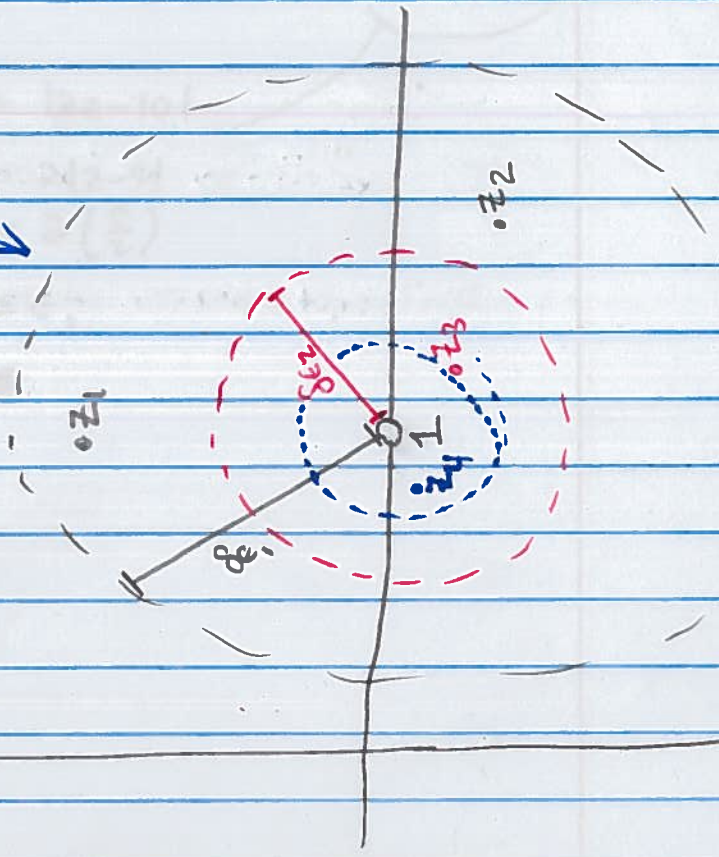 .Z2
.Z3
δε2
.Z1
1
.Z4
δε1